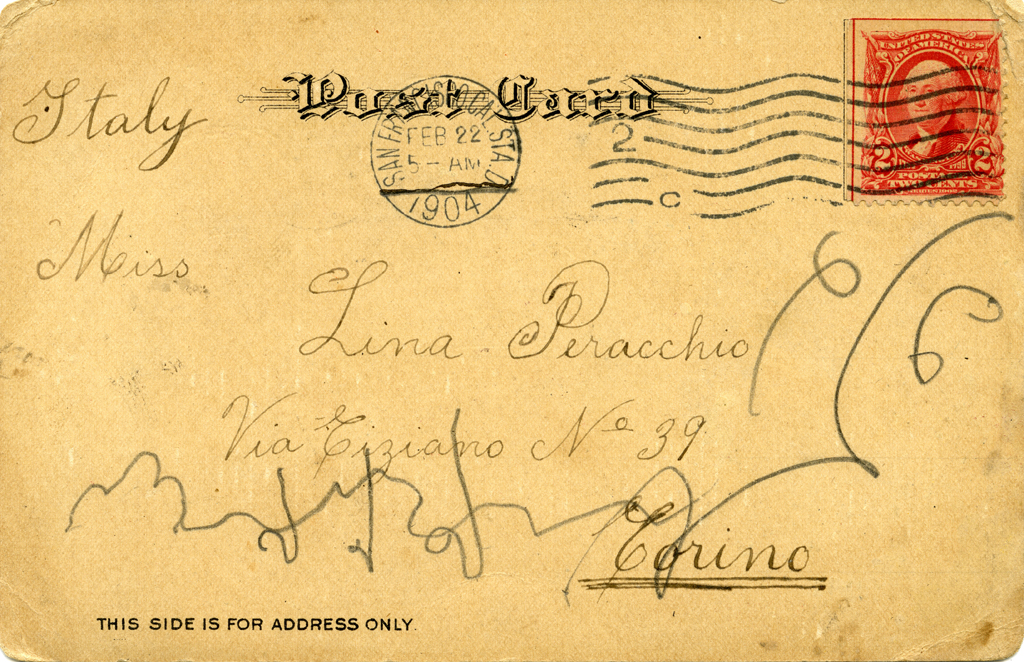 Post Card
Italy
SAN FRANCISCO CAL. STA. D
FEB 22
5 - AM
1904
2
C
UNITED STATES
OF AMERICA
2 2
POSTAGE
TWO CENTS
Miss
Lina Peracchio
Via Tiziano No 39
Torino
THIS SIDE IS FOR ADDRESS ONLY.